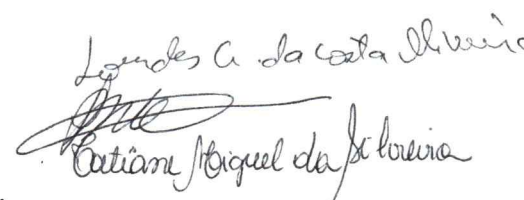 Lourdes G. da Costa Oliveira
Tatiane Miguel da Silveira